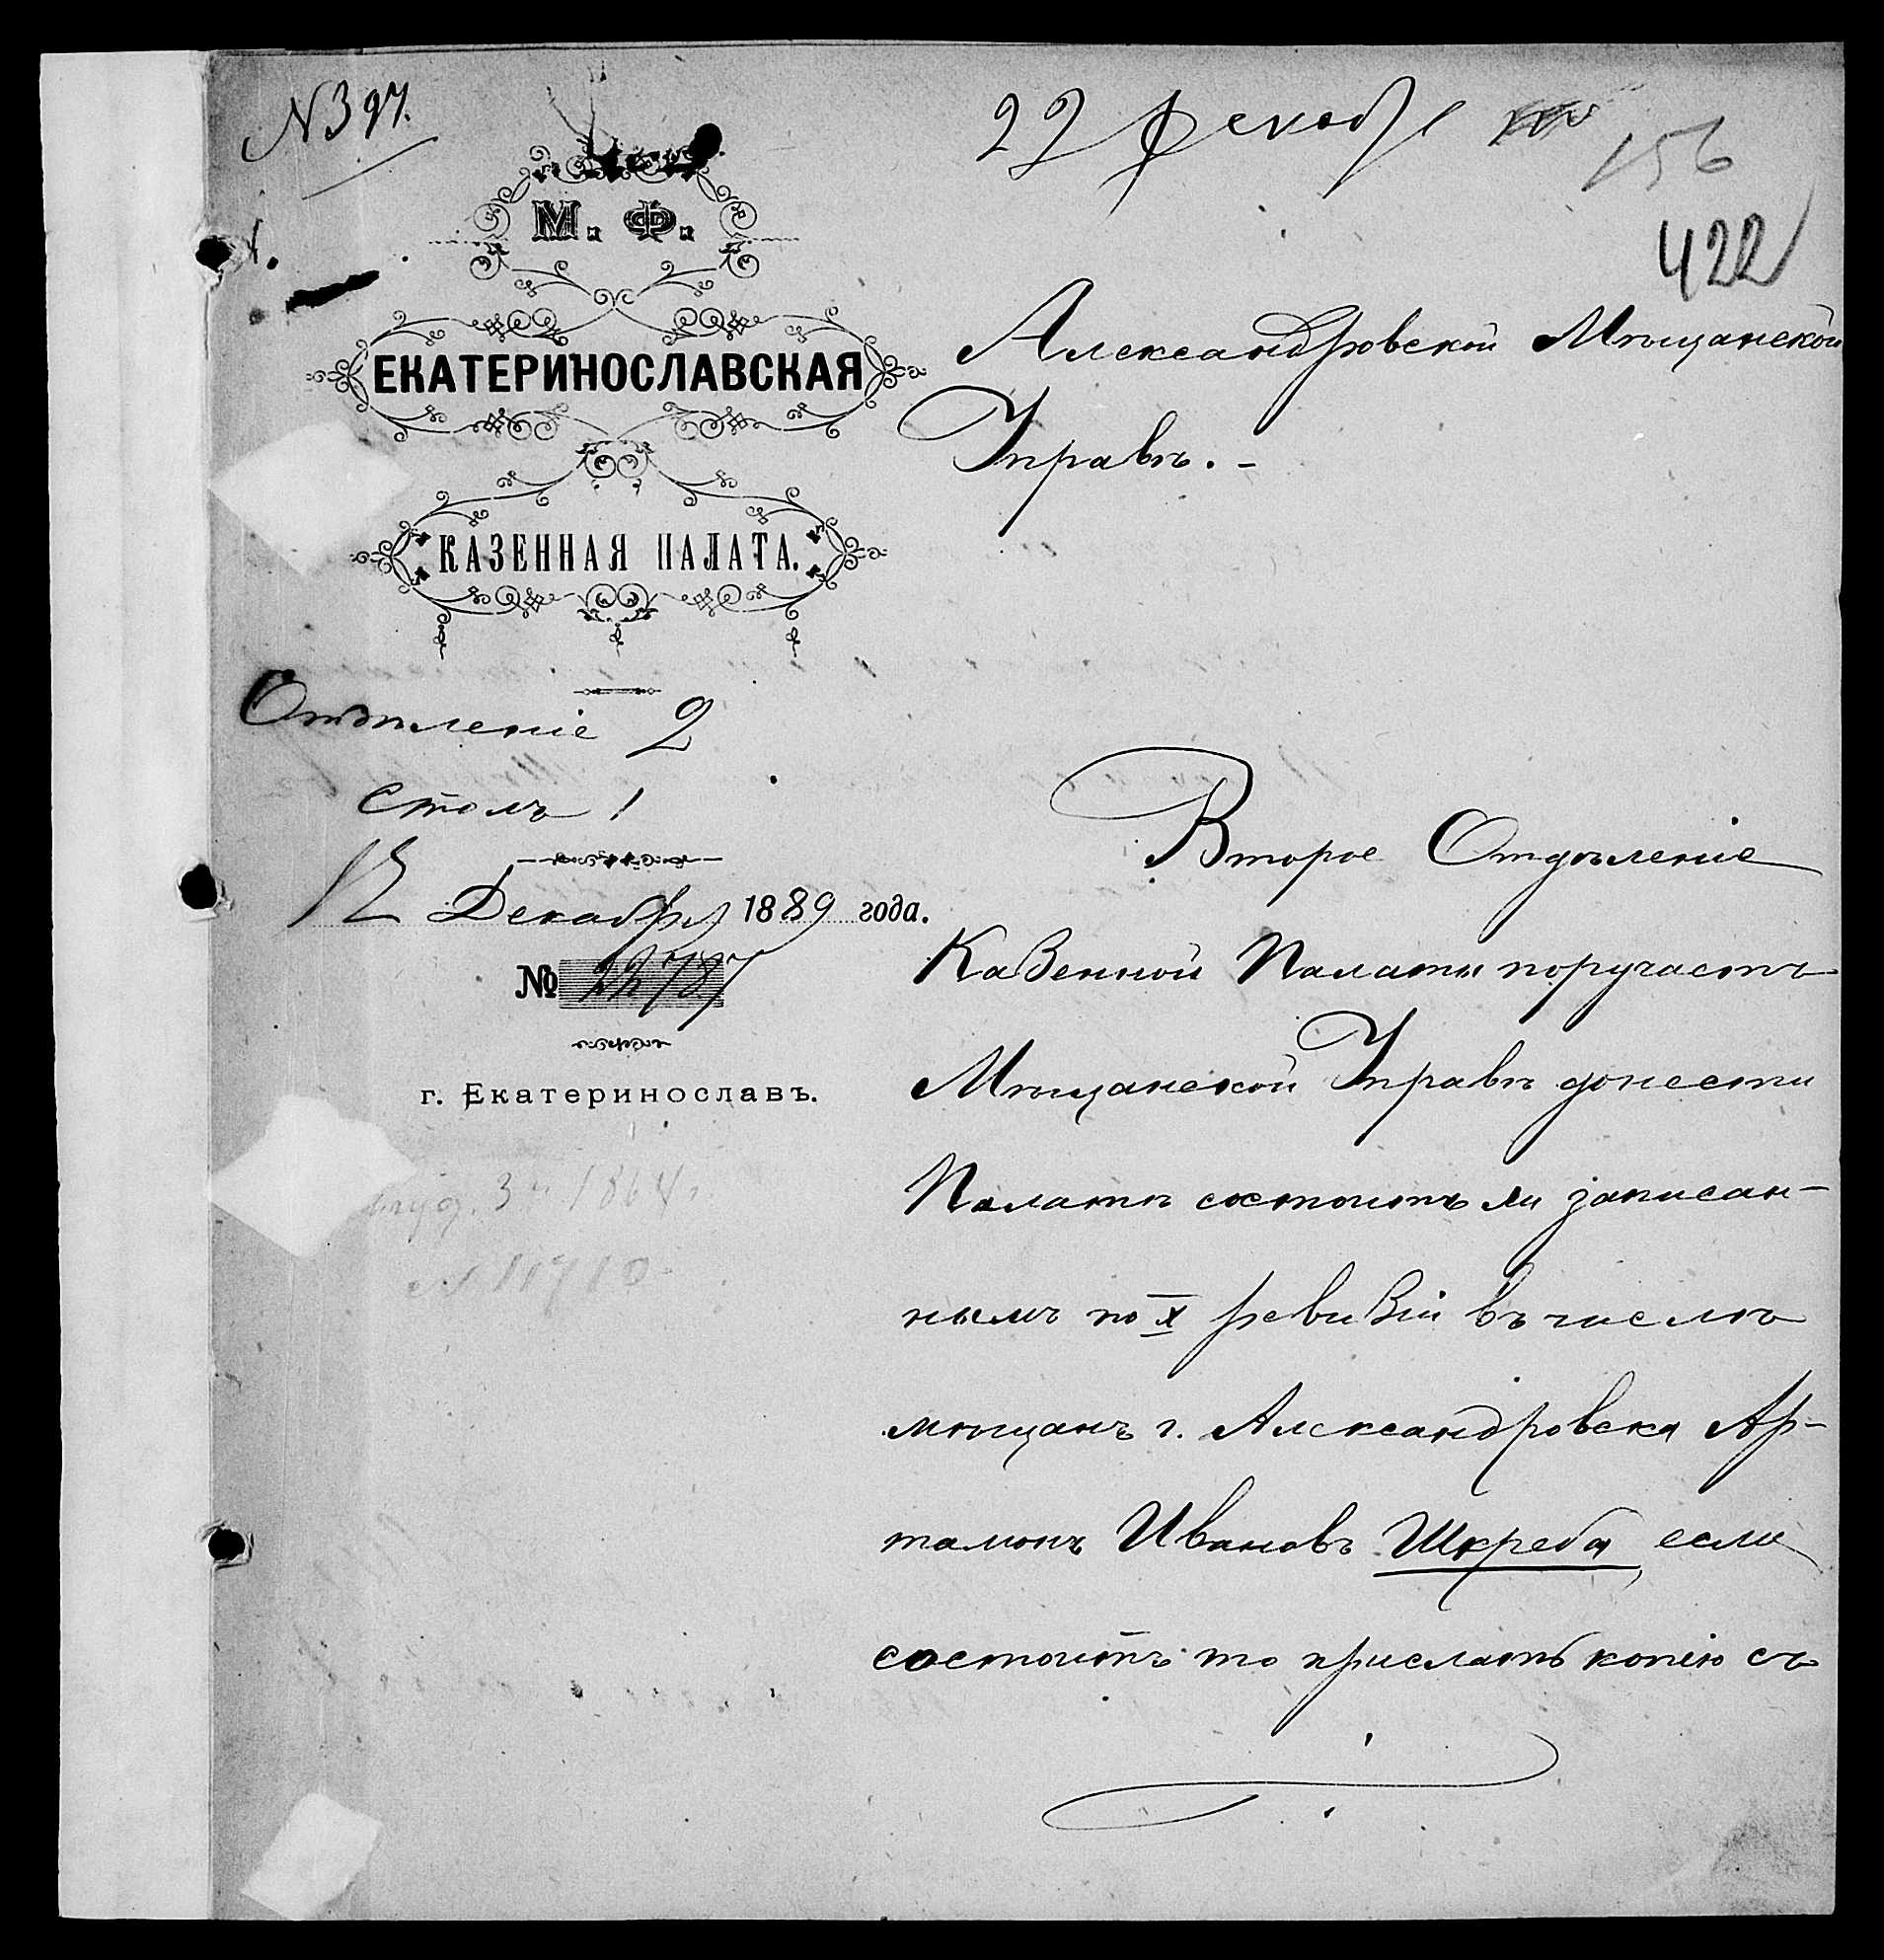 N 397.
22 Декабря
156
422
М. Ф.
ЕКАТЕРИНОСЛАВСКАЯ
КАЗЕННАЯ ПАЛАТА.
Отдѣленіе 2
столъ 1
12 Декабря 1889 года.
№ 22787
г. Екатеринославъ.
3 1864 г.
Александровской Мѣщанской
Управѣ. -
Второе Отдѣленіе
Казенной Палаты поручаетъ
Мѣщанской Управѣ донести
Палатѣ состоитъ ли записан-
нымъ по X ревизіи въ числѣ
мѣщанъ г. Александровска Ар-
тамонъ Ивановъ Шкреба, если
состоитъ то прислать копію съ